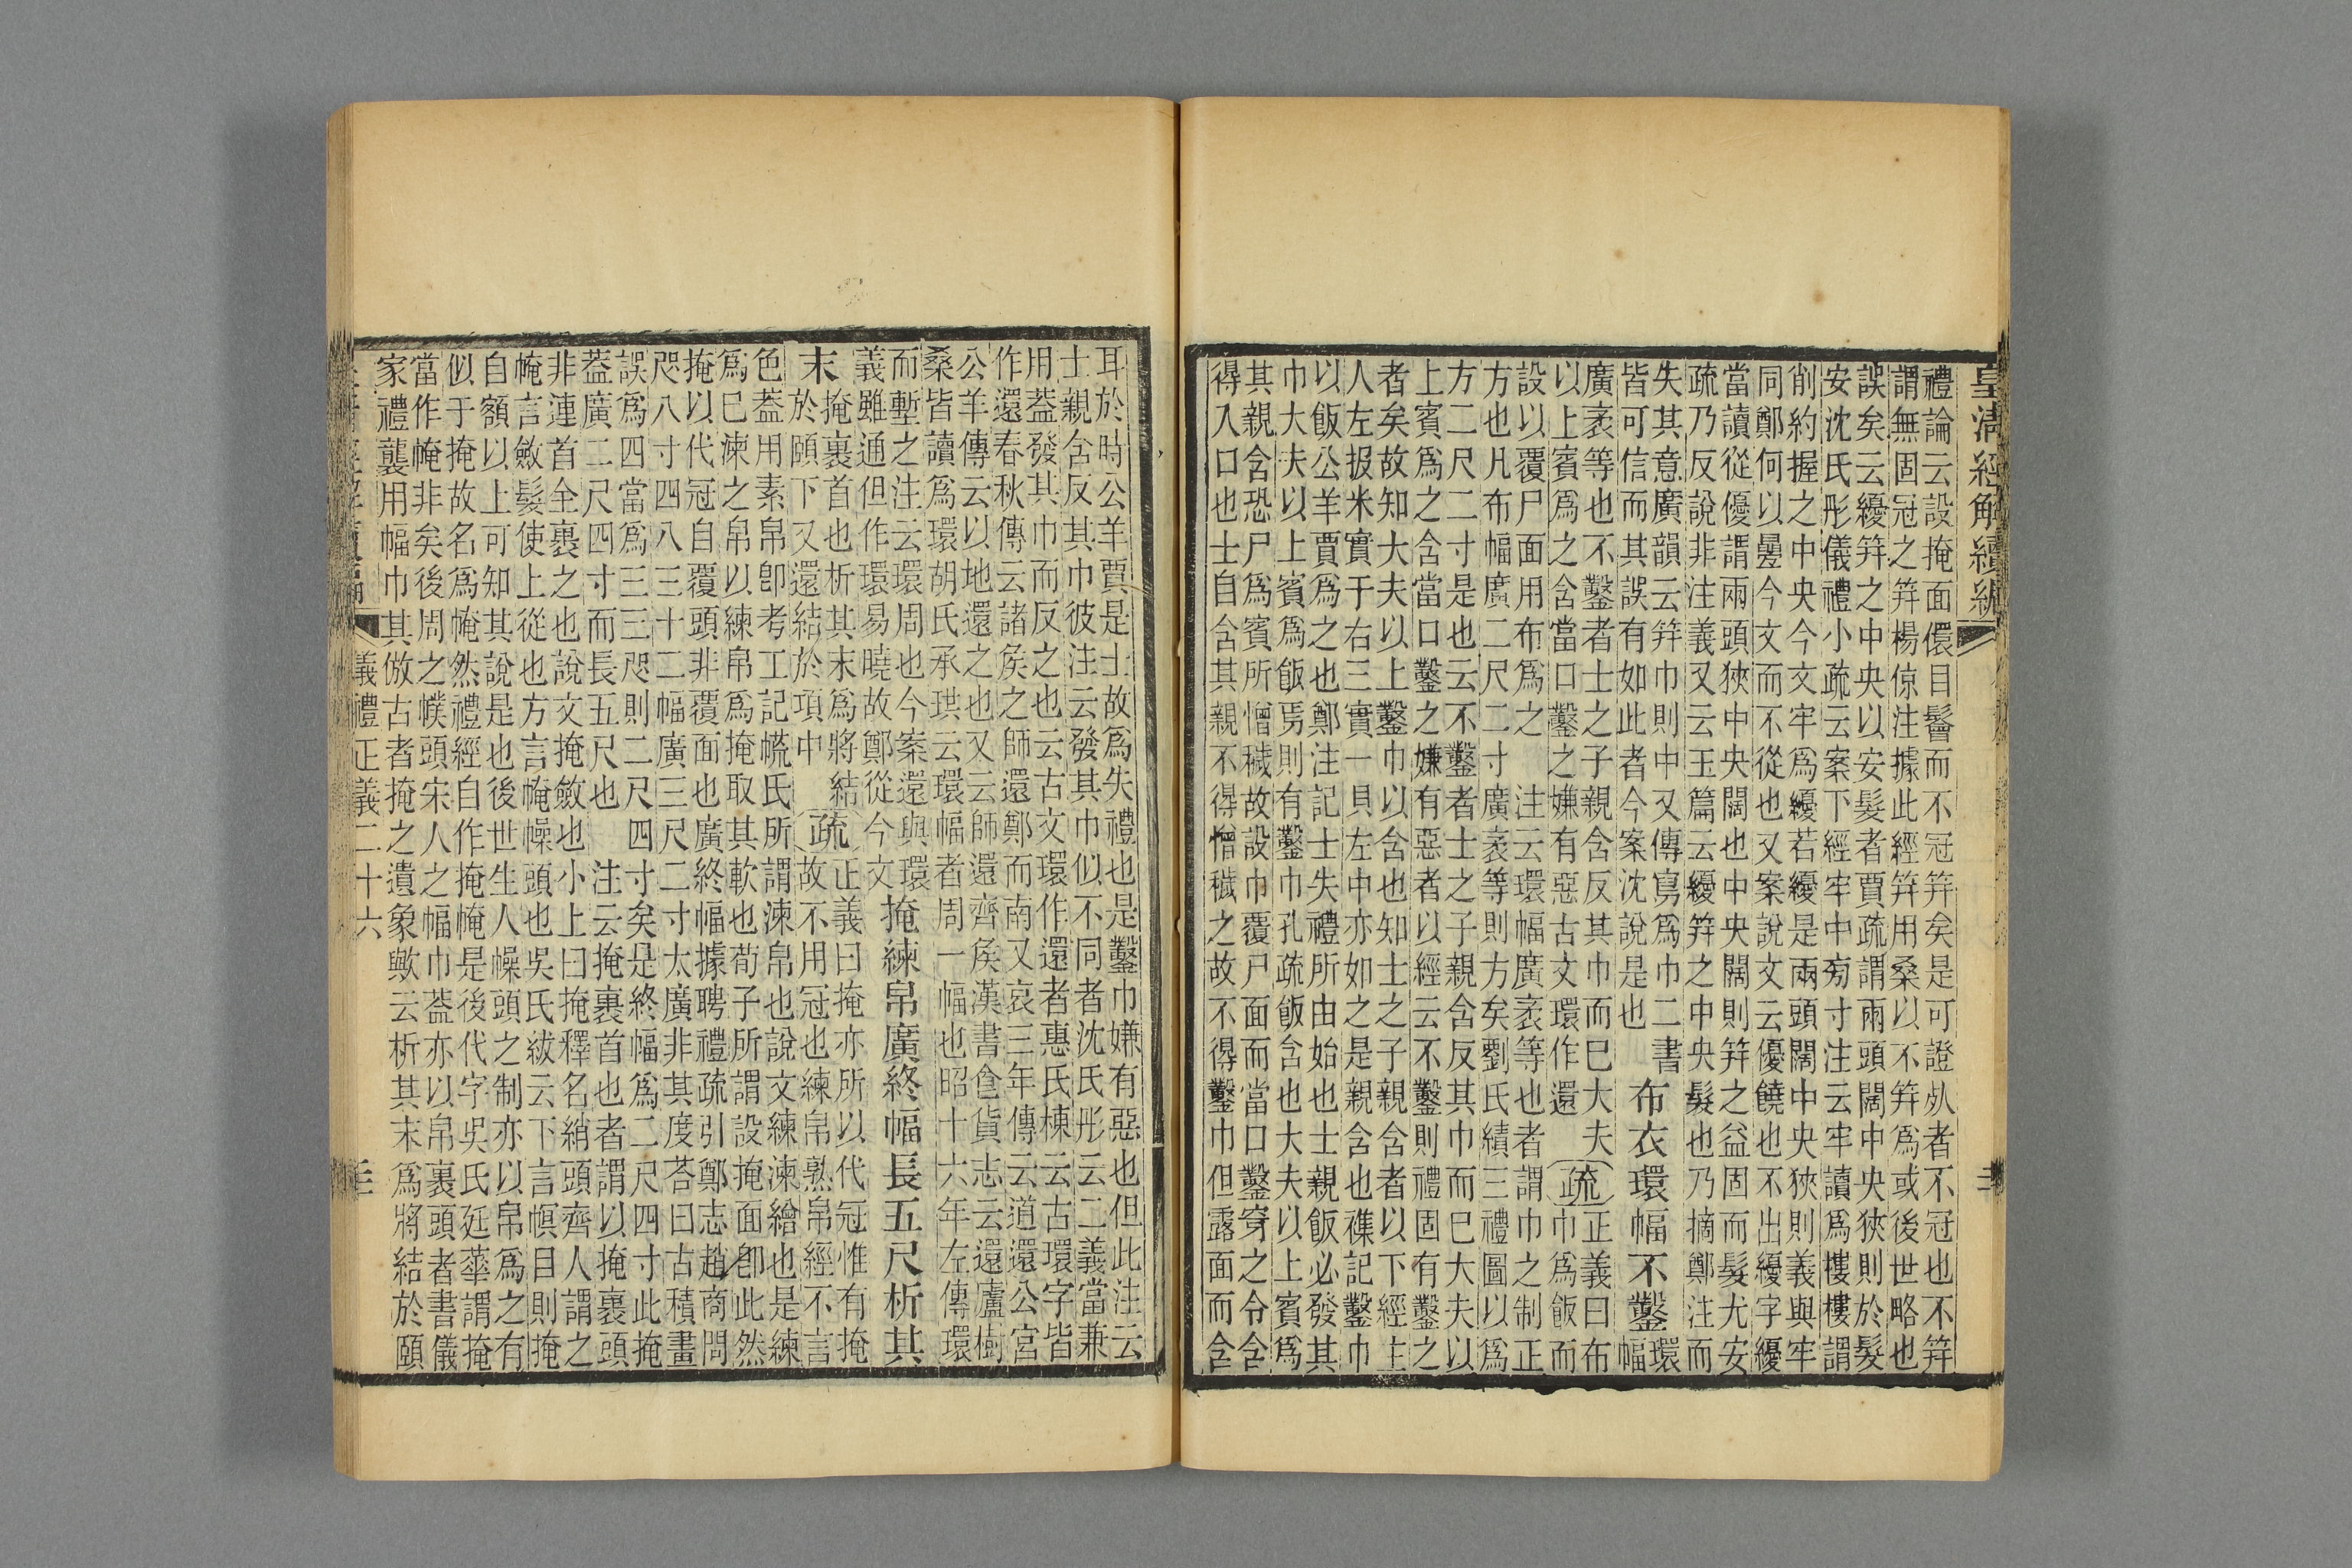 皇清經解續編
禮論云設掩面儇目鬠而不冠笄矣是可證㱙者不冠也不笄
謂無固冠之笄楊倞注據此經笄用桑以不笄爲或後世略也
誤矣云纋笄之中央以安髮者賈疏謂兩頭闊中央狹則於髮
安沈氏彤儀禮小疏云案下經牢中㫄寸注云牢讀爲樓樓謂
削約握之中央今文牢爲纋若纋是兩頭闊中央狹則義與牢
同鄭何以曡今文而不從也又案說文云優饒也不出纋字纋
當讀從優謂兩頭狹中央闊也中央闊則笄之益固而髮尤安
疏乃反說非注義又云玉篇云纋笄之中央髮也乃摘鄭注而
失其意廣韻云笄巾則中又傳寫爲巾二書
皆可信而其誤有如此者今案沈說是也
布衣環幅不鑿
環
幅
廣袤等也不鑿者士之子親含反其巾而已大夫
以上賓爲之含當口鑿之嫌有惡古文環作還
疏
正義曰布
巾爲飯而
設以覆尸面用布爲之 注云環幅廣袤等也者謂巾之制正
方也凡布幅廣二尺二寸廣袤等則方矣劉氏績三禮圖以爲
方二尺二寸是也云不鑿者士之子親含反其巾而已大夫以
上賓爲之含當口鑿之嫌有惡者以經云不鑿則禮固有鑿之
者矣故知大夫以上鑿巾以含也知士之子親含者以下經主
人左扱米實于右三實一貝左中亦如之是親含也襍記鑿巾
以飯公羊賈爲之也鄭注記士失禮所由始也士親飯必發其
巾大夫以上賓爲飯焉則有鑿巾孔疏飯含也大夫以上賓爲
其親含恐尸爲賓所憎穢故設巾覆尸面而當口鑿穿之令含
得入口也士自含其親不得憎穢之故不得鑿巾但露面而含
耳於時公羊賈是士故爲失禮也是鑿巾嫌有惡也但此注云
士親含反其巾彼注云發其巾似不同者沈氏彤云二義當兼
用葢發其巾而反之也云古文環作還者惠氏棟云古環字皆
作還春秋傳云諸矦之師還鄭而南又哀三年傳云道還公宮
公羊傳云以地還之也又云師還齊矦漢書食貨志云還廬樹
桑皆讀爲環胡氏承珙云環幅者周一幅也昭十六年左傳環
而塹之注云環周也今案還與環
義雖通但作環易曉故鄭從今文
掩練帛廣終幅長五尺析其
末
掩裹首也析其末爲將結
於頤下又還結於項中
疏
正義曰掩亦所以代冠惟有掩
故不用冠也練帛熟帛經不言
色葢用素帛卽考工記㡛氏所謂湅帛也說文練湅繒也是練
爲已湅之帛以練帛爲掩取其軟也荀子所謂設掩面卽此然
掩以代冠自覆頭非覆面也廣終幅據聘禮疏引鄭志趙商問
咫八寸四八三十二幅廣三尺二寸太廣非其度荅曰古積畫
誤爲四當爲三三咫則二尺四寸矣是終幅爲二尺四寸此掩
葢廣二尺四寸而長五尺也 注云掩裹首也者謂以掩裹頭
非連首全裹之也說文掩斂也小上曰掩釋名綃頭齊人謂之
㡋言斂髮使上從也方言㡋幧頭也吳氏紱云下言幎目則掩
自額以上可知其說是也後世生人幧頭之制亦以帛爲之有
似于掩故名爲㡋然禮經自作掩㡋是後代字吳氏廷華謂掩
當作㡋非矣後周之幞頭宋人之幅巾葢亦以帛裹頭者書儀
家禮襲用幅巾其倣古者掩之遺象歟云析其末爲將結於頤
義禮正義二十六